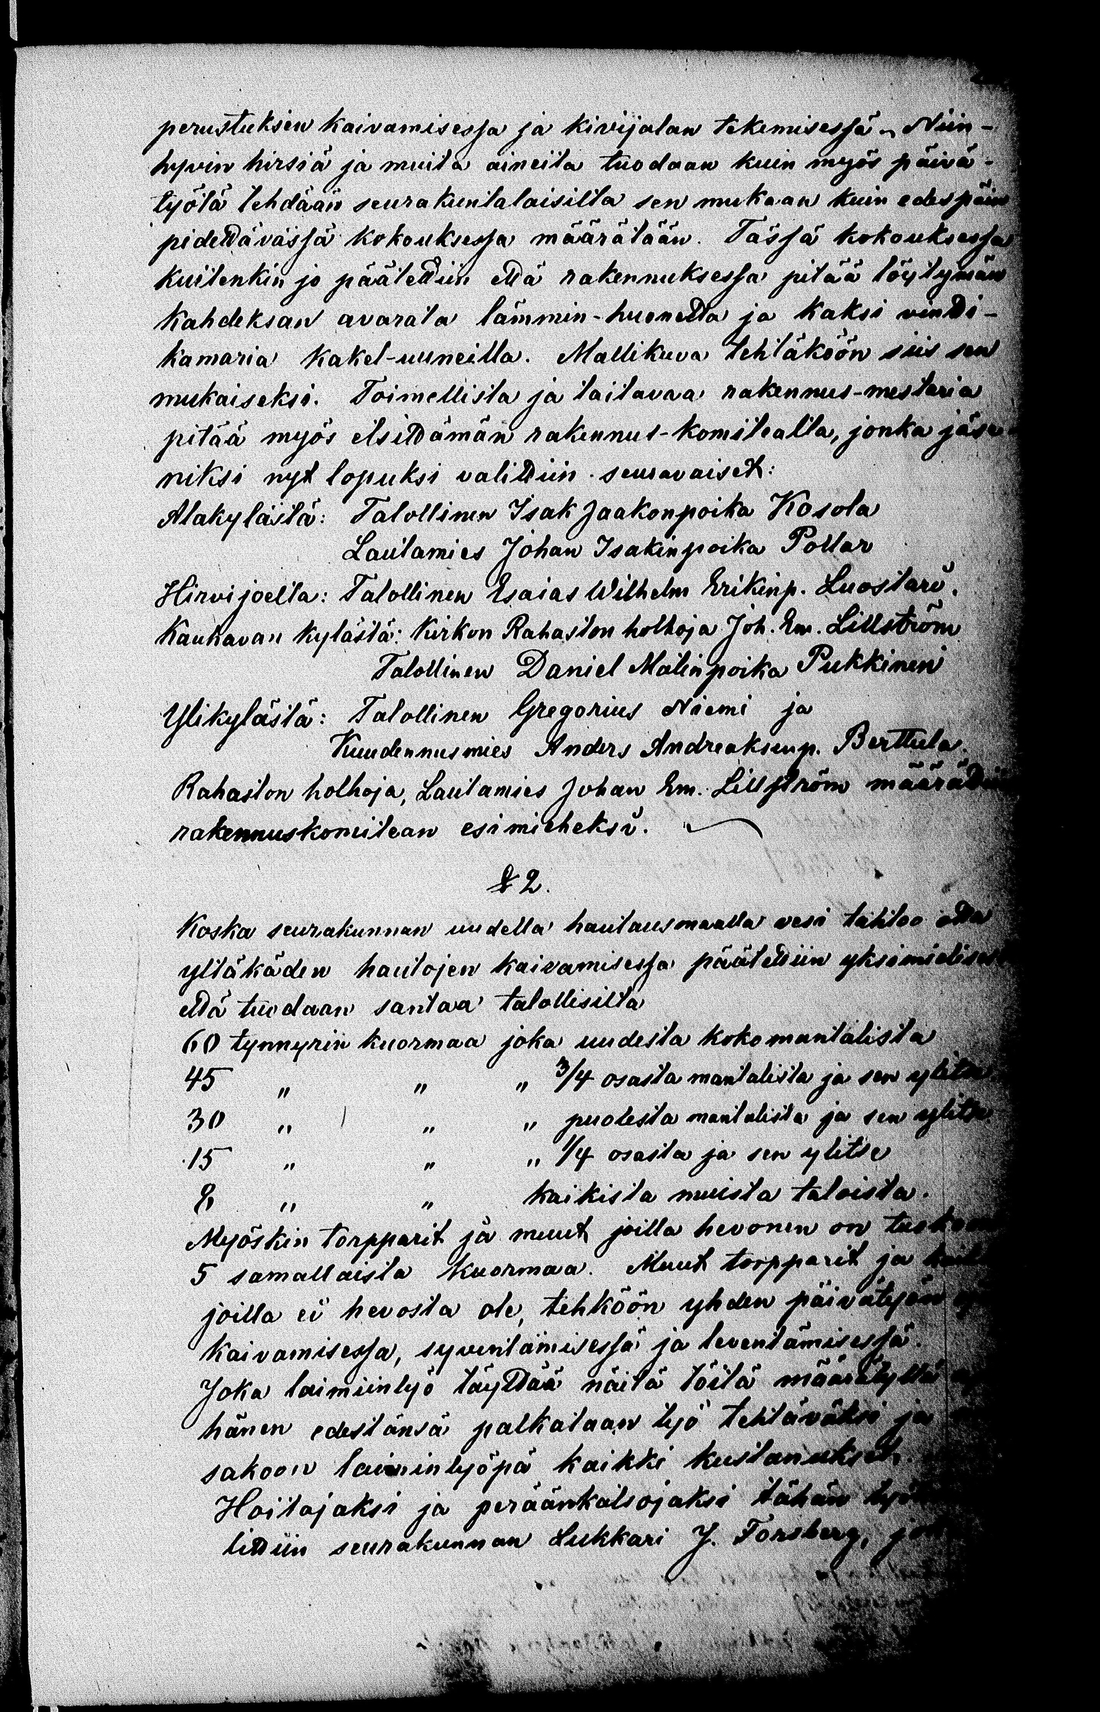 perustuksen kaivamisessa ja kivijalan tekemisessä. Niin-
hyvin hirsiä ja muita aineita tuodaan kuin myös päivä-
työtä tehdään seurakuntalaisilta sen mukaan kuin edespäin
pidettävässä kokouksessa määrätään. Tässä kokouksessa
kuitenkin jo päätettiin että rakennuksessa pitää löytymän
kahdeksan avarata lämmin-huonetta ja kaksi vintti-
kamaria kakel-uuneilla. Mallikuva tehtäköön siis sen
mukaiseksi. Toimellista ja taitavaa rakennus-mestaria
pitää myös etsittämän rakennus-komitealta, jonka jäse
niksi nyt lopuksi valittiin seuravaiset:
Alakylästä: Talollinen Isak Jaakonpoika Kosola
Lautamies Johan Isakinpoika Pollar
Hirvijoelta: Talollinen Esaias Wilhelm Erikinp. Luostari.
Kauhavan kylästä: Kirkon Rahaston holhoja Joh. Em. Lillström
Talollinen Daniel Matinpoika Pukkinen
Ylikylästä: Talollinen Gregorius Niemi ja
Kuudennusmies Anders Andreaksenp. Berttula.
Rahaston holhoja, Lautamies Johan Em. Lillström määrättiin
rakennuskomitean esimieheksi.
§ 2.
Koska seurakunnan uudella hautausmaalla vesi tahtoo olla
yltäkäden hautojen kaivamisessa päätettiin yksimielisesti
että tuodaan santaa talollisilta
60 tynnyrin kuormaa joka uudesta kokomantalista
45 " " " 3/4 osasta mantalista ja sen ylitse
30 " " " puolesta mantalista ja sen ylitse
15 " " " 1/4 osasta ja sen ylitse
8 " " kaikista muista taloista.
Myöskin torpparit ja muut joilla hevonen on tuokoon
5 samallaista kuormaa. Muut torpparit ja
joilla ei hevosta ole, tehköön yhden päivätyön
kaivamisessa, syventämisessä ja leventämisessä.
Joka laiminlyö täyttää näitä töitä määrätyllä
hänen edestänsä palkataan työ tehtäväksi ja
sakoon laiminlyöpä kaikki kustanukset.
Hoitajaksi ja peräänkatsojaksi tähän
littiin seurakunnan Lukkari J. Forsberg,